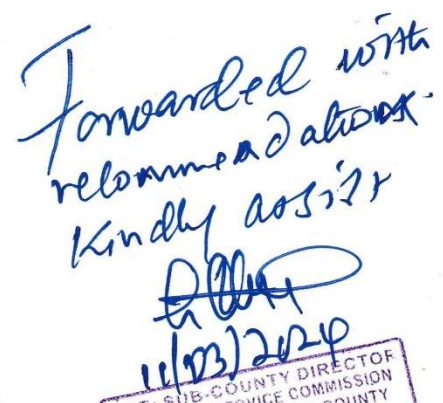 Forwarded with
recommendations.
Kindly assist
11/03/2024
SUB-COUNTY DIRECTOR
SERVICE COMMISSION
COUNTY